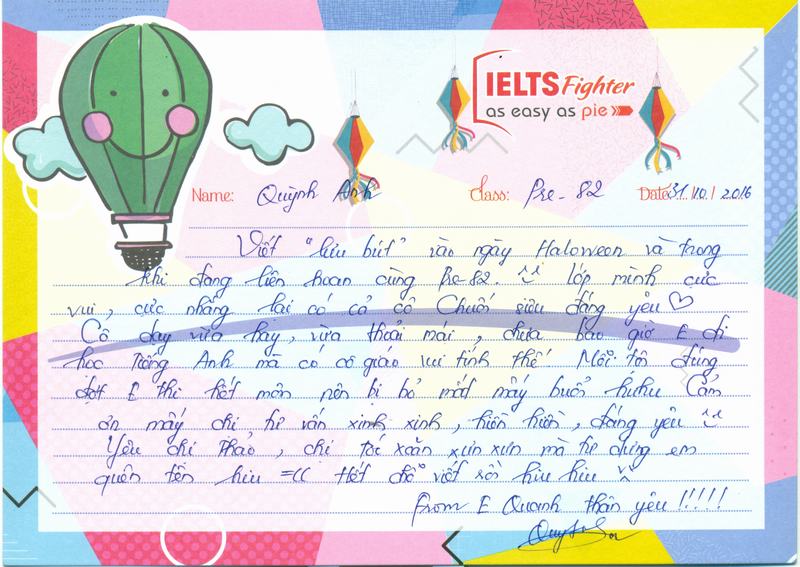 IELTS Fighter
as easy as pie
Name: Quỳnh Anh Class: Pre-82 Date: 31/10/2016
Viết "lưu bút" vào ngày Haloween và trong
khi đang liên hoan cùng Pre-82. ^^ lớp mình cực
vui, cực nhắng lại có cả cô Chuối siêu đáng yêu ♡
Cô dạy vừa hay, vừa thoải mái, chưa bao giờ E đi
học Tiếng Anh mà có cô giáo vui tính thế. Mỗi tội đúng
đợt E thi hết môn nên bị bỏ mất mấy buổi huhu Cảm
ơn mấy chị trợ vấn xinh xinh, hiền hiền, đáng yêu ^^
Yêu chị Thảo, chị tóc xoăn xưn xưn mà tự dưng em
quên tên hiu =(( Hết chỗ viết rồi hiu hiu
From E Quanh thân yêu !!!!!